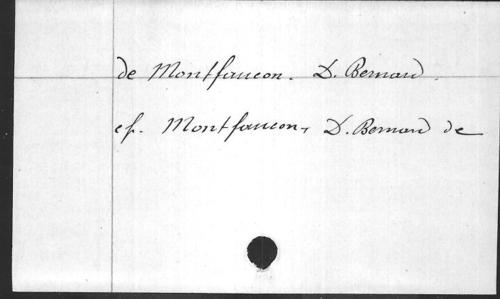 de Montfaucon. D. Bernard.
cf. Montfaucon, D. Bernard de